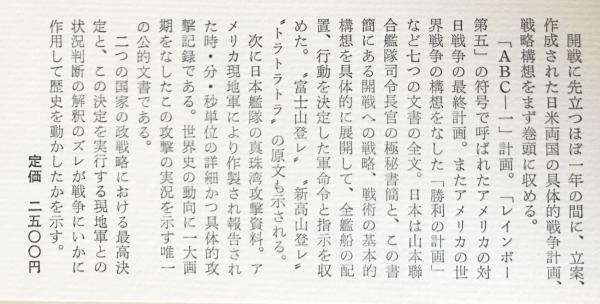 開戦に先立つほぼ一年の間に、立案、
作成された日米両国の具体的戦争計画、
戦略構想をまず巻頭に収める。
「ABC—一」計画。「レインボー
第五」の符号で呼ばれたアメリカの対
日戦争の最終計画。またアメリカの世
界戦争の構想をなした「勝利の計画」
など七つの文書の全文。日本は山本聯
合艦隊司令長官の極秘書簡と、この書
簡にある開戦への戦略、戦術の基本的
構想を具体的に展開して、全艦船の配
置、行動を決定した軍命令と指示を収
めた。〝富士山登レ〟〝新高山登レ〟
〝トラトラトラ〟の原文も示される。
次に日本艦隊の真珠湾攻撃資料。ア
メリカ現地軍により作製され報告され
た時・分・秒単位の詳細かつ具体的攻
撃記録である。世界史の動向に一大画
期をなしたこの攻撃の実況を示す唯一
の公的文書である。
二つの国家の政戦略における最高決
定と、この決定を実行する現地軍との
状況判断の解釈のズレが戦争にいかに
作用して歴史を動かしたかを示す。
定価 二五〇〇円